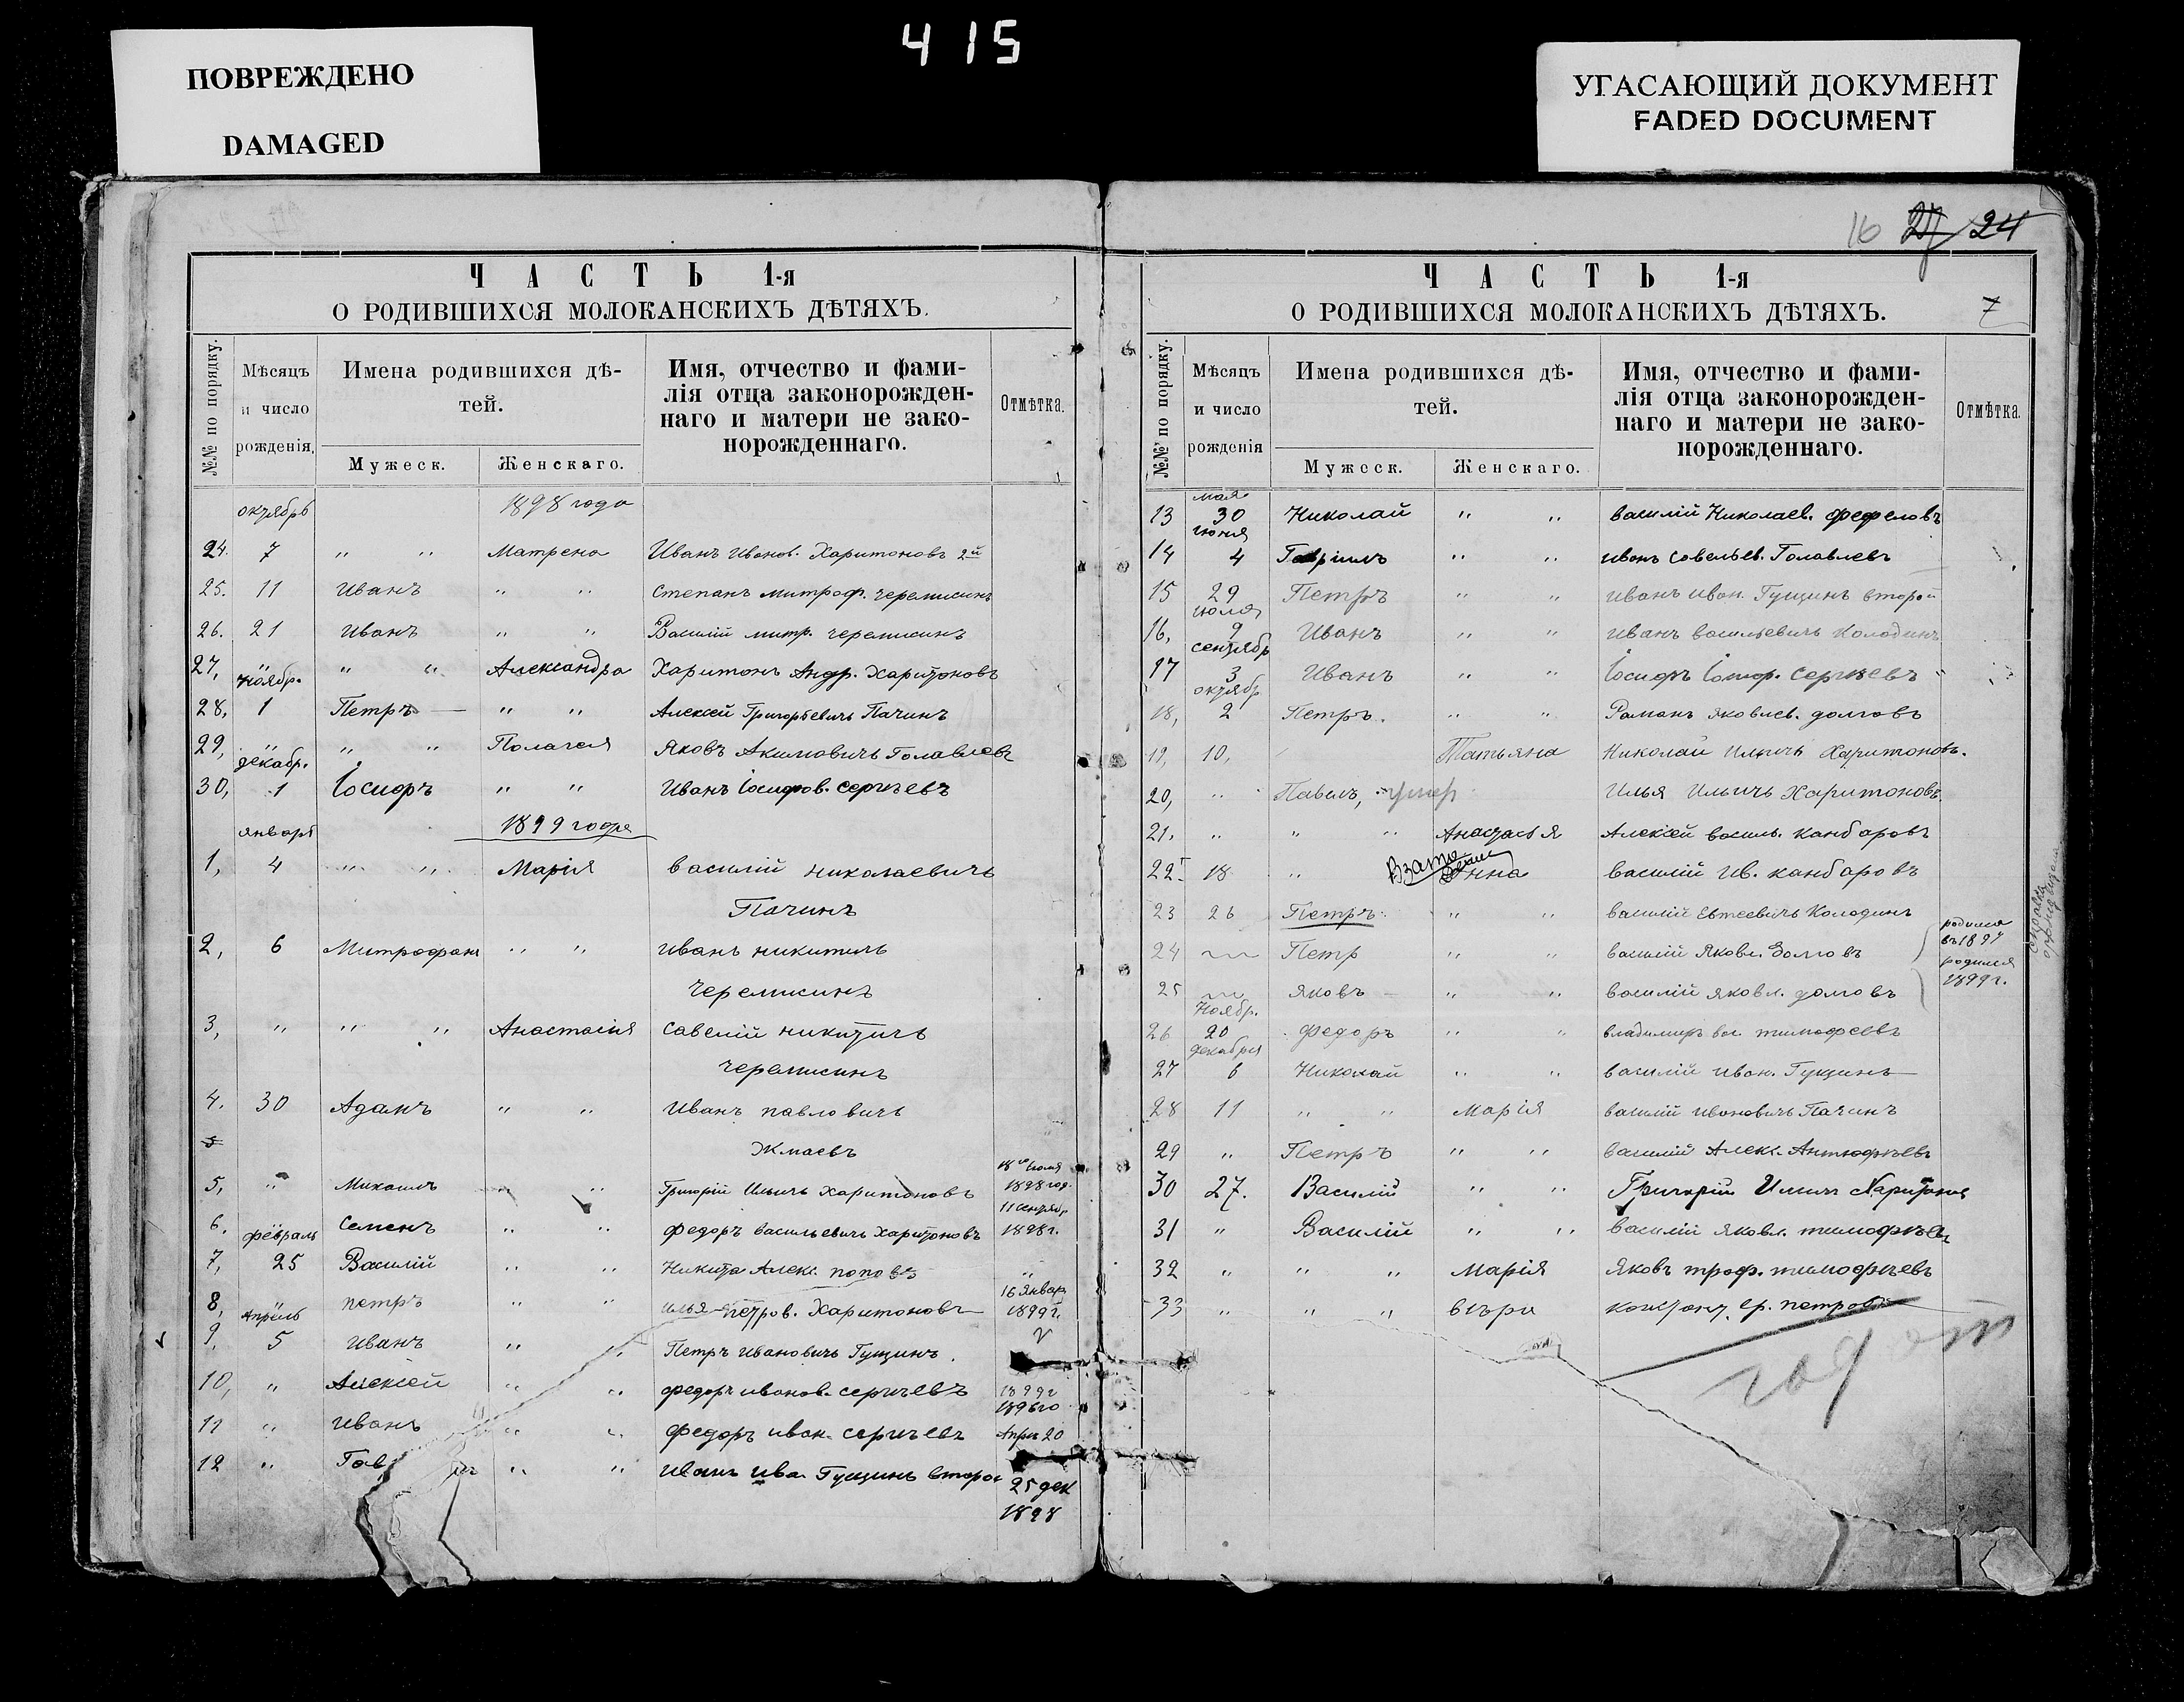 415
ПОВРЕЖДЕНО
DAMAGED
УГАСАЮЩИЙ ДОКУМЕНТ
FADED DOCUMENT
ЧАСТЬ 1-я
О РОДИВШИХСЯ МОЛОКАНСКИХЪ ДѢТЯХЪ.
№№ по порядку.
Мѣсяцъ и число рожденія,
Имена родившихся дѣтей.
Мужеск. Женскаго.
Имя, отчество и фамилія отца законорожденнаго и матери не законорожденнаго.
Отмѣтка.
октябрь 1898 года
24. 7 " " Матрена Иванъ Иванов. Харитоновъ 2й
25. 11 Иванъ " " Степанъ митроф. Черемисинъ
26. 21 Иванъ " " Василій митр. черемисинъ
27, " " " Александра Харитонъ Андр. Харитоновъ
ноябр.
28, 1 Петръ " " Алексей Григорьевичь Пачинъ
29, " " " Полагея Яковъ Акимовичь Голавлевъ
декабр.
30, 1 Іосифъ " " Иванъ Іосифов. Сергѣевъ
января 1899 года
1, 4 " " Марія василій николаевичь
Пачинъ
2, 6 Митрофанъ " " иванъ никитичь
Черемисинъ
3, " " " Анастасия савелій никитичь
черемисинъ
4. 30 Адамъ " " Иванъ павловичь
5
Жмаевъ
18го июля
5, " Михаилъ " " Григорій Ильичь Харитоновъ 1898 год.
11 сентябр
6. " Семенъ " " федоръ васильевичь Харитоновъ 1898г.
февраль
7, 25 Василій " " Никита Алекс. поповъ "
16 Январ
8, " петръ " " илья петров. Харитоновъ 1899г.
Апрѣль
9, 5 иванъ " " Петръ ивановичь Гущинъ. V
10, " Алексей " " федоръ иванов. сергѣевъ 1899г
1896го
11 " Иванъ " " федоръ иван. сергѣевъ Апрѣ 20
12 " Гав " " иванъ ива. Гущинъ второ
25 дек
1898
16 27 24
ЧАСТЬ 1-я
7
О РОДИВШИХСЯ МОЛОКАНСКИХЪ ДѢТЯХЪ.
№№ по порядку.
Мѣсяцъ и число рожденія
Имена родившихся дѣтей.
Мужеск. Женскаго.
Имя, отчество и фамилія отца законорожденнаго и матери не законорожденнаго.
Отмѣтка.
мая
13 30 Николай " " василій Николаев. Фефеловъ
июня
14 4 Гаврилъ " " иванъ савельев. Голавлевъ
15 29 Петръ " " иванъ иван. Гущинъ второй
июля
16, 9 Иванъ " " иванъ васильевичь Колодинъ
сентябр
17 3 Иванъ " " Іосифъ Іосиф. Сергѣевъ
октябр
18, 2 Петръ. " " Романъ яковлев. долговъ
19, 10, Татьяна Николай Ильичь Харитоновъ.
20, " Павелъ, умер Илья Ильичь Харитоновъ.
21. " " " Анастасья Алексей василь. канбаровъ
22. 18 " Взамѣ Анна василій ив. канбаровъ
23 26 Петръ " " василій евтеевичь Колодинъ
24 Петр " " василій Яковл. Долговъ родился въ 1897
25 яковъ " " василій яковл. долговъ родился 1899г.
Ноябр.
26 20 федоръ " " владимиръ вас. тимофеевъ
декабря
27 6 Николай " " василій иван. Гущинъ
28 11 " " Марія василій ивановичь Пачинъ
29 " Петръ " " василій Алекс. Антюфѣевъ
30 27. Василій " " Григорій Ильич Харитонов
31 " Василій " " василій яковл. тимофѣев
32 " " " Марія Яковъ троф. тимофѣевъ
33 " " " вѣра